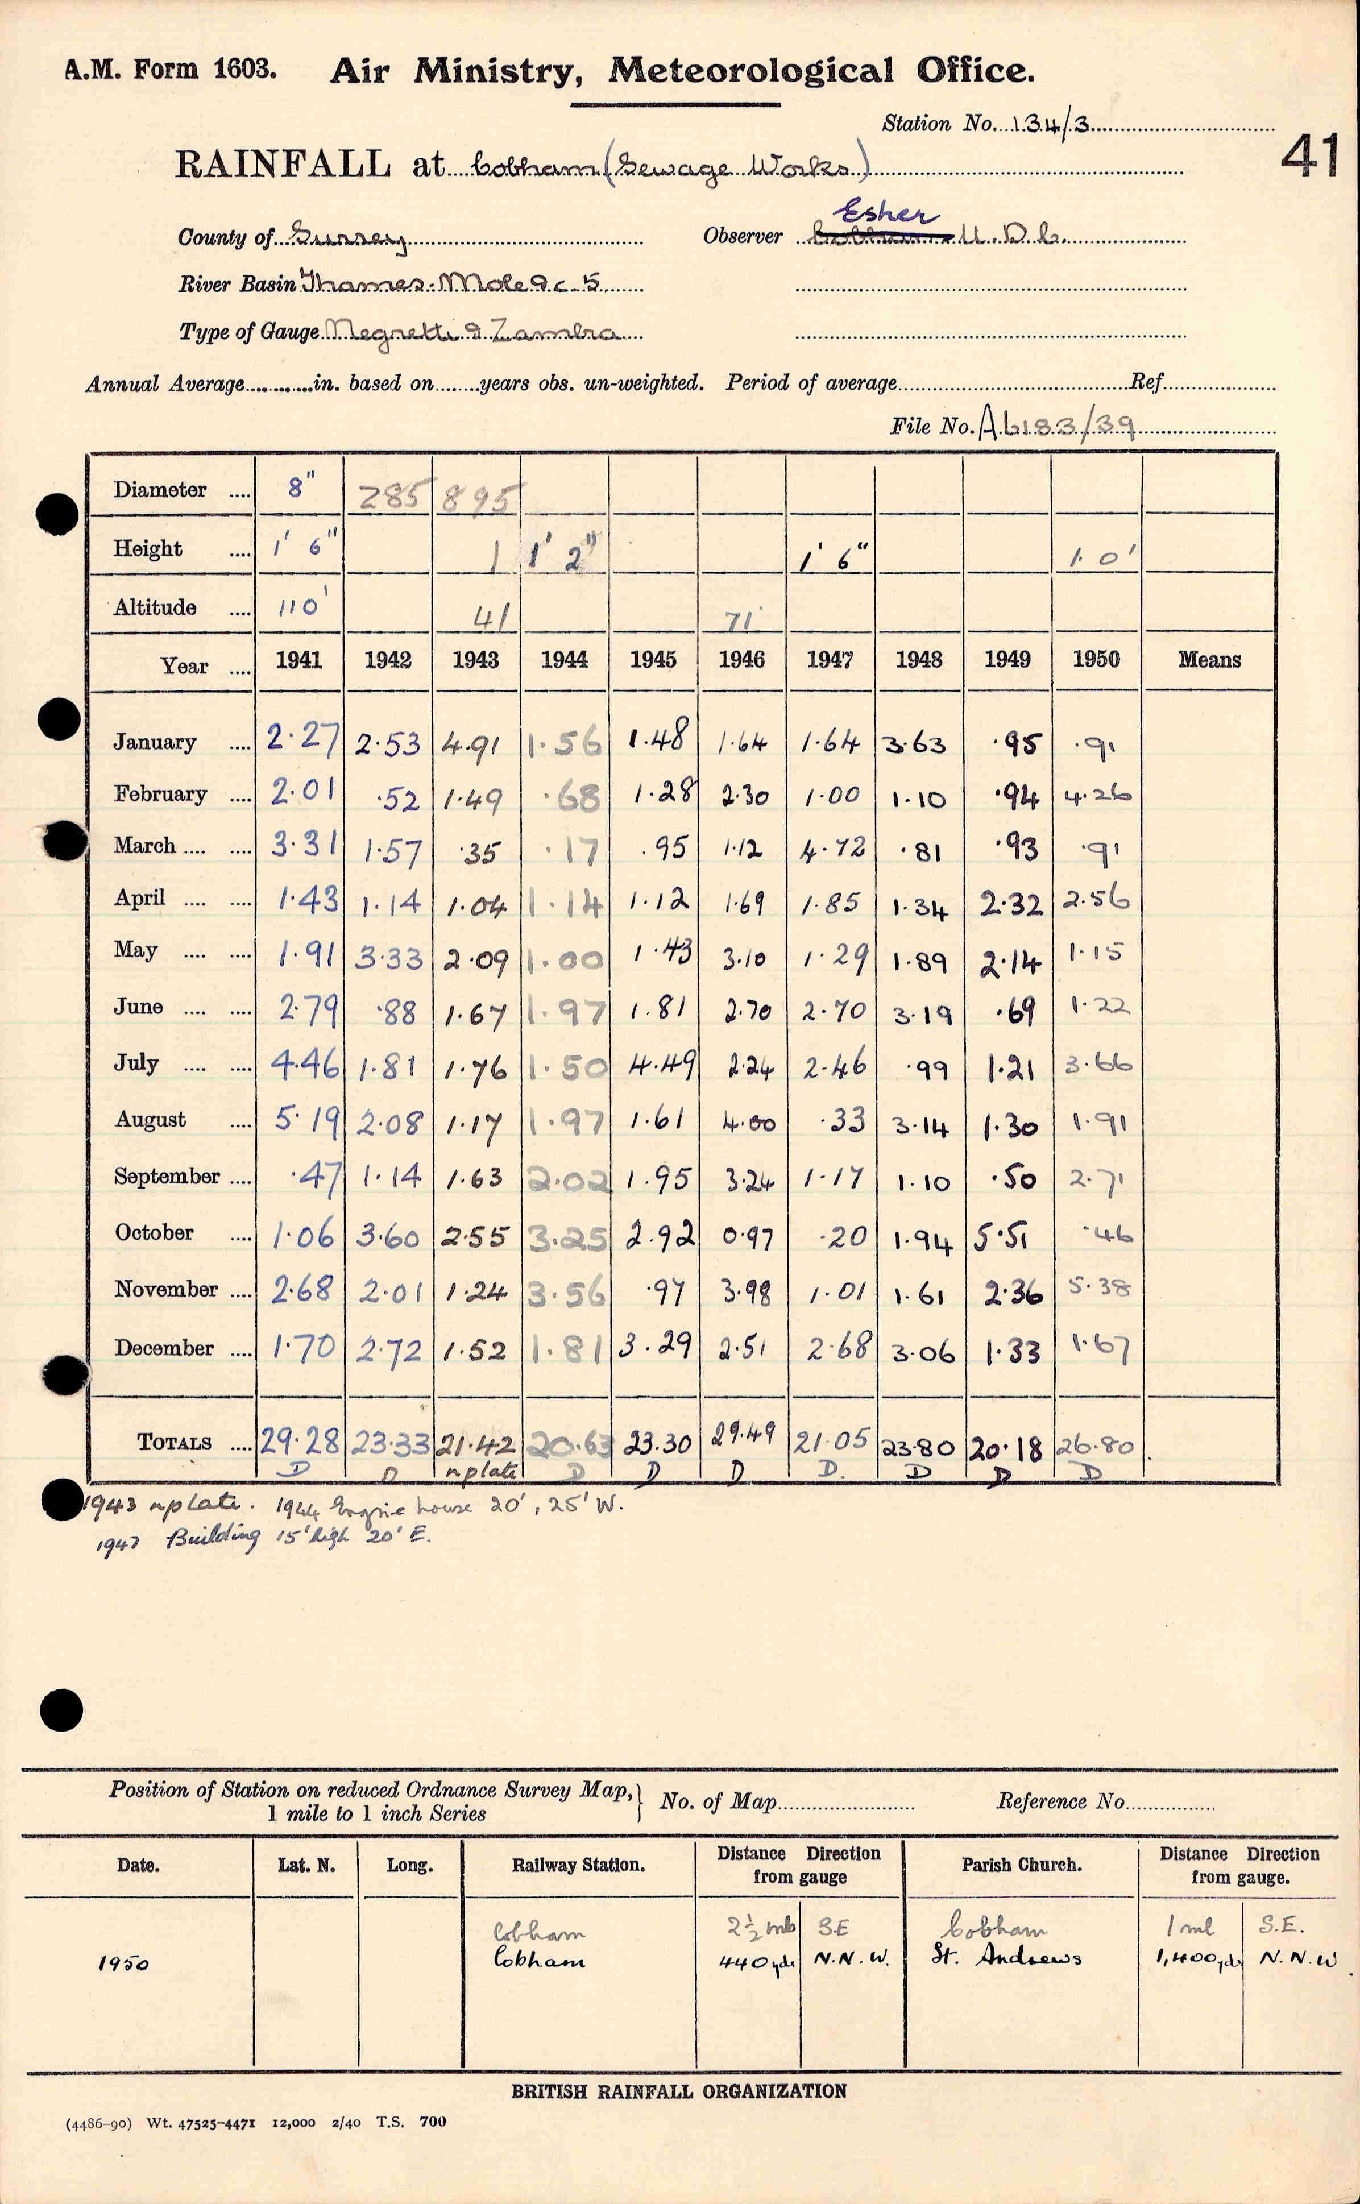 A.M. Form 1603. Air Ministry, Meteorological Office.
Station No. 134/3
41
RAINFALL at Cobham (Sewage Works)
Esher
County of Surrey Observer Cobham U.D.C.
River Basin Thames-Mole 9c 5
Type of Gauge Negretti & Zambra
Annual Average............in. based on........years obs. un-weighted. Period of average.......... Ref..........
File No. A6183/39
Diameter .... 8" 285 895
Height .... 1' 6" 1 1' 2" 1' 6" 1.0'
Altitude .... 110' 41 71
Year .... 1941 1942 1943 1944 1945 1946 1947 1948 1949 1950 Means
January .... 2.27 2.53 4.91 1.56 1.48 1.64 1.64 3.63 .95 .91
February .... 2.01 .52 1.49 .68 1.28 2.30 1.00 1.10 .94 4.26
March .... .... 3.31 1.57 .35 .17 .95 1.12 4.72 .81 .93 .91
April .... .... 1.43 1.14 1.04 1.14 1.12 1.69 1.85 1.34 2.32 2.56
May .... .... 1.91 3.33 2.09 1.00 1.43 3.10 1.29 1.89 2.14 1.15
June .... .... 2.79 .88 1.67 1.97 1.81 2.70 2.70 3.19 .69 1.22
July .... .... 4.46 1.81 1.76 1.50 4.49 2.24 2.46 .99 1.21 3.66
August .... 5.19 2.08 1.17 1.97 1.61 4.00 .33 3.14 1.30 1.91
September .... .47 1.14 1.63 2.02 1.95 3.24 1.17 1.10 .50 2.71
October .... 1.06 3.60 2.55 3.25 2.92 0.97 .20 1.94 5.51 .46
November .... 2.68 2.01 1.24 3.56 .97 3.98 1.01 1.61 2.36 5.38
December .... 1.70 2.72 1.52 1.81 3.29 2.51 2.68 3.06 1.33 1.67
TOTALS .... 29.28 23.33 21.42 20.63 23.30 29.49 21.05 23.80 20.18 26.80
D D nplate D D D D. D D D
1943 nplate. 1944 Engine house 20', 25' W.
1947 Building 15' high 20' E.
Position of Station on reduced Ordnance Survey Map,
1 mile to 1 inch Series
No. of Map.......... Reference No..........
Date. Lat. N. Long. Railway Station. Distance Direction from gauge Parish Church. Distance Direction from gauge.
Cobham 2½ mls SE Cobham 1 ml S.E.
1950 Cobham 440 yds N.N.W. St. Andrews 1,400 yds N.N.W.
BRITISH RAINFALL ORGANIZATION
(4486-90) Wt. 47525-4471 12,000 2/40 T.S. 700